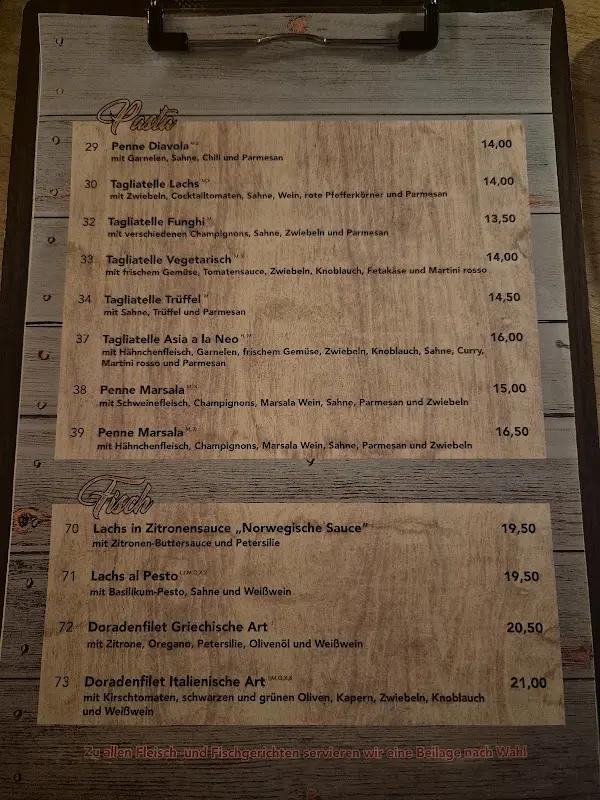 Pasta
29 Penne Diavola 14,00
mit Garnelen, Sahne, Chili und Parmesan
30 Tagliatelle Lachs 14,00
mit Zwiebeln, Cocktailtomaten, Sahne, Wein, rote Pfefferkörner und Parmesan
32 Tagliatelle Funghi 13,50
mit verschiedenen Champignons, Sahne, Zwiebeln und Parmesan
33 Tagliatelle Vegetarisch 14,00
mit frischem Gemüse, Tomatensauce, Zwiebeln, Knoblauch, Fetakäse und Martini rosso
34 Tagliatelle Trüffel 14,50
mit Sahne, Trüffel und Parmesan
37 Tagliatelle Asia a la Neo 16,00
mit Hähnchenfleisch, Garnelen, frischem Gemüse, Zwiebeln, Knoblauch, Sahne, Curry,
Martini rosso und Parmesan
38 Penne Marsala 15,00
mit Schweinefleisch, Champignons, Marsala Wein, Sahne, Parmesan und Zwiebeln
39 Penne Marsala 16,50
mit Hähnchenfleisch, Champignons, Marsala Wein, Sahne, Parmesan und Zwiebeln
Fisch
70 Lachs in Zitronensauce „Norwegische Sauce“ 19,50
mit Zitronen-Buttersauce und Petersilie
71 Lachs al Pesto 19,50
mit Basilikum-Pesto, Sahne und Weißwein
72 Doradenfilet Griechische Art 20,50
mit Zitrone, Oregano, Petersilie, Olivenöl und Weißwein
73 Doradenfilet Italienische Art 21,00
mit Kirschtomaten, schwarzen und grünen Oliven, Kapern, Zwiebeln, Knoblauch
und Weißwein
Zu allen Fleisch- und Fischgerichten servieren wir eine Beilage nach Wahl